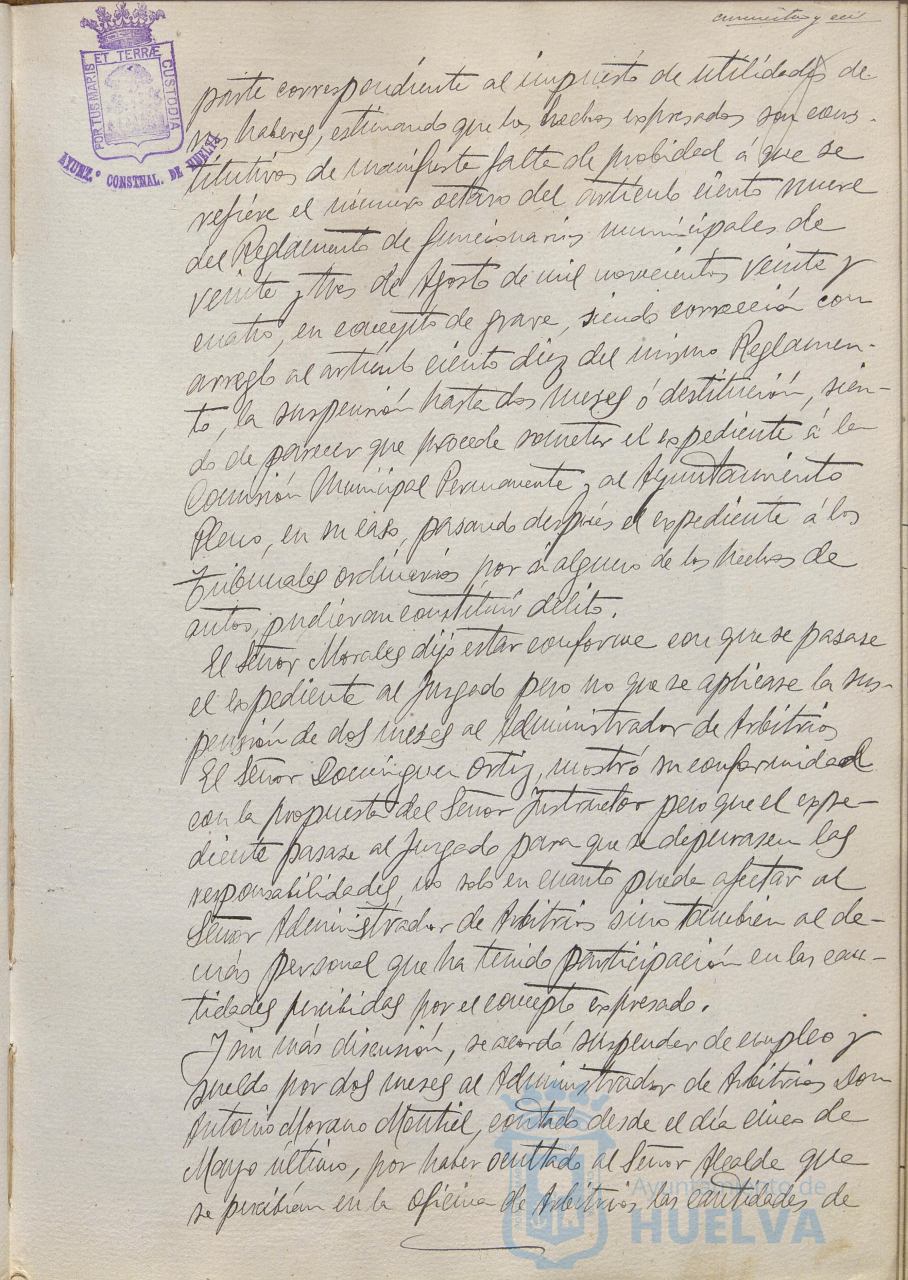 cincuenta y seis
PORTUS MARIS ET TERRÆ CUSTODIA
AYUNZ.º CONSTNAL. DE HUELVA
parte correspondiente al impuesto de utilidades de
sus haberes, estimando que los hechos expresados son cons-
titutivos de manifiesta falta de probidad á que se
refiere el número octavo del artículo ciento nueve
del Reglamento de funcionarios municipales de
veinte y tres de Agosto de mil novecientos veinte y
cuatro, en concepto de grave, siendo corrección con
arreglo al artículo ciento diez del mismo Reglamen-
to, la suspensión hasta dos meses ó destitución, sien-
do de parecer que procede someter el expediente á la
Comisión Municipal Permanente y al Ayuntamiento
Pleno, en su caso, pasando después el expediente á los
Tribunales ordinarios por si alguno de los hechos de
autos, pudieran constituir delito.
El Señor Morales dijo estar conforme con que se pasase
el expediente al Juzgado pero no que se aplicase la sus-
pensión de dos meses al Administrador de Arbitrios
El Señor Domínguez Ortiz, mostró su conformidad
con la propuesta del Señor Instructor pero que el expe-
diente pasase al Juzgado para que se depurasen las
responsabilidades no solo en cuanto puede afectar al
Señor Administrador de Arbitrios sino también al de-
más personal que ha tenido participación en las can-
tidades percibidas por el concepto expresado.
Y sin más discusión, se acordó suspender de empleo y
sueldo por dos meses al Administrador de Arbitrios Don
Antonio Morano Montiel, contado desde el día cinco de
Mayo último, por haber ocultado al Señor Alcalde que
se percibían en la oficina de Arbitrios las cantidades de
Ayuntamiento de
HUELVA